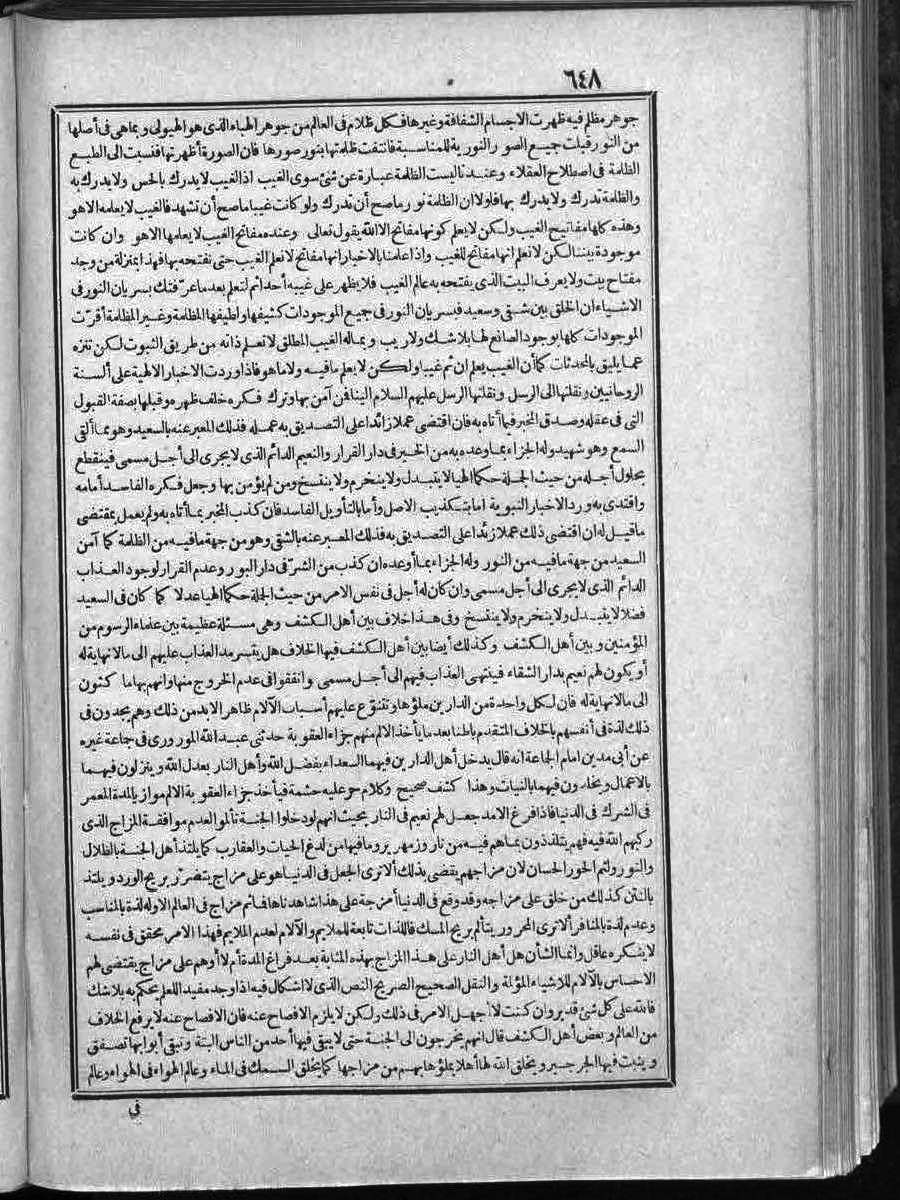 ٦٤٨
جوهر مظلم فيه ظهرت الاجسام الشفافة وغيرها فكل ظلام فى العالم من جوهر الهباء الذى هو الهيولى وبما هى فى أصلها
من النور قبلت جميع الصور النورية للمناسبة فانتفت ظلمتها بنور صورها فان الصورة أظهرتها فنسبت الى الطبع
الظلمة فى اصطلاح العقلاء وعندنا ليست الظلمة عبارة عن شئ سوى الغيب اذ الغيب لا يدرك بالحس ولا يدرك به
والظلمة تدرك ولا يدرك بها فلولا ان الظلمة نور ماصح أن تدرك ولو كانت غيبا ماصح أن تشهد فالغيب لا يعلمه الا هو
وهذه كلها مفاتيح الغيب ولكن لا يعلم كونها مفاتح الا الله يقول تعالى وعنده مفاتح الغيب لا يعلمها الا هو وان كانت
موجودة بيننا لكن لا نعلم انها مفاتح للغيب واذا علمنا بالاخبار انها مفاتح لا نعلم الغيب حتى نفتحه بها فهذا بمنزلة من وجد
مفتاح بيت ولا يعرف البيت الذى يفتحه به عالم الغيب فلا يظهر على غيبه أحدا ثم لتعلم بعد ما عرّفتك بسريان النور فى
الاشياء ان الخلق بين شقى وسعيد فبسريان النور فى جميع الموجودات كثيفها ولطيفها المظلمة وغير المظلمة أقرّت
الموجودات كلها بوجود الصانع لها بلا شك ولا ريب وبما له الغيب المطلق لا تعلم ذاته من طريق الثبوت لكن تنزه
عما يليق بالمحدثات كما أن الغيب يعلم ان ثم غيبا ولكن لا يعلم ما فيه ولا ما هو فاذا وردت الاخبار الالهية على ألسنة
الروحانيين ونقلتها الى الرسل ونقلتها الرسل عليهم السلام الينا فمن آمن بها وترك فكره خلف ظهره وقبلها بصفة القبول
التى فى عقله وصدق المخبر فيما أتاه به فان اقتضى عملا زائدا على التصديق به عمله فذلك المعبر عنه بالسعيد وهو مما ألقى
السمع وهو شهيد وله الجزاء بما وعده به من الخير فى دار القرار والنعيم الدائم الذى لا يجرى الى أجل مسمى فينقطع
بحلول أجله من حيث الجملة حكما الهيا لا يتبدل ولا ينخرم ولا ينفسخ ومن لم يؤمن بها وجعل فكره الفاسد أمامه
واقتدى به ورد الاخبار النبوية اما بتكذيب الاصل وأما بالتأويل الفاسد فان كذب المخبر بما أتاه به ولم يعمل بمقتضى
ما قيل له ان اقتضى ذلك عملا زائدا على التصديق به فذلك المعبر عنه بالشقى وهو من جهة ما فيه من الظلمة كما آمن
السعيد من جهة ما فيه من النور وله الجزاء بما أوعده ان كذب من الشرّ فى دار البور وعدم القرار لوجود العذاب
الدائم الذى لا يجرى الى أجل مسمى وان كان له أجل فى نفس الامر من حيث الجملة حكما الهيا عدلا كما كان فى السعيد
فضلا لا يتبدل ولا ينخرم ولا ينفسخ وفى هذا خلاف بين أهل الكشف وهى مسئلة عظيمة بين علماء الرسوم من
المؤمنين وبين أهل الكشف وكذلك أيضا بين أهل الكشف فيها الخلاف هل يتسرمد العذاب عليهم الى ما لا نهاية له
أو يكون لهم نعيم بدار الشقاء فينتهى العذاب فيهم الى أجل مسمى واتفقوا فى عدم الخروج منها وانهم بها ما كثون
الى ما لا نهاية له فان لكل واحدة من الدارين ملؤها وتتنوّع عليهم أسباب الآلام ظاهرا لا بد من ذلك وهم يجدون فى
ذلك لذة فى أنفسهم بالخلاف المتقدم باطنا بعد ما يأخذ الالم منهم جزاء العقوبة حدثنى عبد الله الموروری فى جماعة غيره
عن أبى مدين امام الجماعة انه قال يدخل أهل الدارين فيهما السعداء بفضل الله وأهل النار بعدل الله وينزلون فيهما
بالاعمال ويخلدون فيهما بالنيات وهذا كشف صحيح وكلام حرّ عليه حشمة فيأخذ جزاء العقوبة الالم موازيا لمدة العمر
فى الشرك فى الدنيا فاذا فرغ الامد جعل لهم نعيم فى النار بحيث انهم لو دخلوا الجنة تألموا لعدم موافقة المزاج الذى
ركبهم الله فيه فهم يتلذذون بما هم فيه من نار وزمهرير وما فيها من لدغ الحيات والعقارب كما يلتذ أهل الجنة بالظلال
والنور ولثم الحور الحسان لان مزاجهم يقضى بذلك ألا ترى الجعل فى الدنيا هو على مزاج يتضرّر بريح الورد ويلتذ
بالنتن كذلك من خلق على مزاجه وقد وقع فى الدنيا أمزجة على هذا شاهدناها فما ثم مزاج فى العالم الا وله لذة بالمناسب
وعدم لذة بالمنافر ألا ترى المحرور يتألم بريح المسك فاللذات تابعة للملايم والآلام لعدم الملايم فهذا الامر محقق فى نفسه
لا ينكره عاقل وانما الشأن هل أهل النار على هذا المزاج بهذه المثابة بعد فراغ المدة أم لا أو هم على مزاج يقتضى لهم
الاحساس بالآلام للاشياء المؤلمة والنقل الصحيح الصريح النص الذى لا اشكال فيه اذا وجد مفيد اللعلم يحكم به بلا شك
فالله على كل شئ قدير وان كنت لا أجهل الامر فى ذلك ولكن لا يلزم الافصاح عنه فان الافصاح عنه لا يرفع الخلاف
من العالم وبعض أهل الكشف قال انهم يخرجون الى الجنة حتى لا يبقى فيها أحد من الناس البتة وتبقى أبوابها تصفق
وينبت فيها الجرجير ويخلق الله لها أهلا يملؤها بهم من مزاجها كما يخلق السمك فى الماء وعالم الهواء فى الهواء وعالم
فى